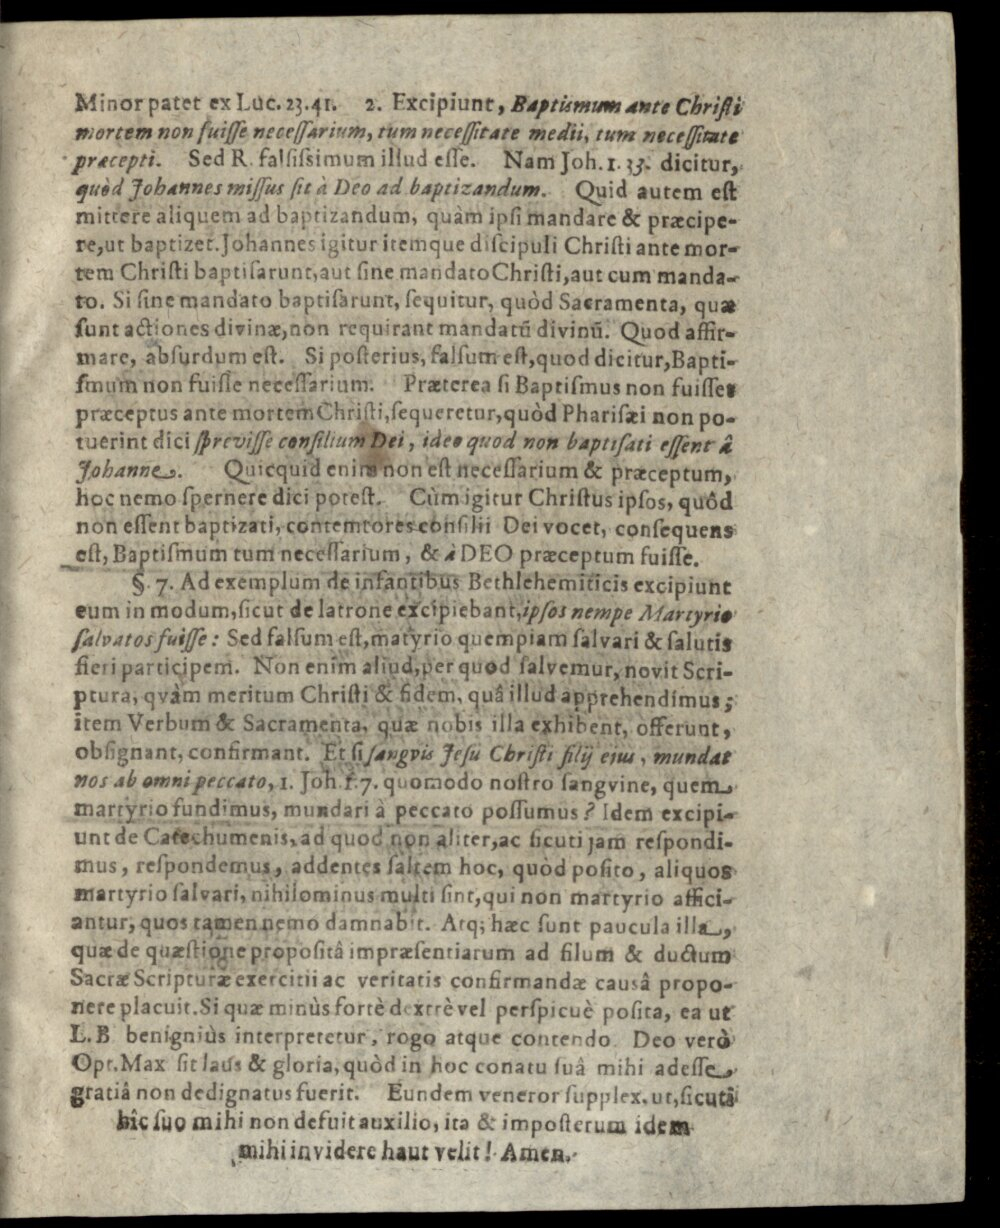 Minor patet ex Luc. 23.41. 2. Excipiunt, Baptismum ante Christi
mortem non fuiſſe neceſſarium, tum neceſſitate medii, tum neceſſitate
præcepti. Sed R. falſiſsimum illud eſſe. Nam Joh. 1. 33. dicitur,
quòd Johannes miſſus ſit à Deo ad baptizandum. Quid autem eſt
mittere aliquem ad baptizandum, quàm ipſi mandare & præcipe-
re, ut baptizet. Johannes igitur itemque diſcipuli Chriſti ante mor-
tem Chriſti baptiſarunt, aut ſine mandato Chriſti, aut cum manda-
to. Si ſine mandato baptiſarunt, ſequitur, quòd Sacramenta, quæ
ſunt actiones divinæ, non requirant mandatū divinū. Quod affir-
mare, abſurdum eſt. Si poſterius, falſum eſt, quod dicitur, Bapti-
ſmum non fuiſſe neceſſarium. Præterea ſi Baptiſmus non fuiſſet
præceptus ante mortem Chriſti, ſequeretur, quòd Phariſæi non po-
tuerint dici ſpreviſſe conſilium Dei, ideo quod non baptiſati eſſent â
Johanne. Quicquid enim non eſt neceſſarium & præceptum,
hoc nemo ſpernere dici poteſt. Cùm igitur Chriſtus ipſos, quôd
non eſſent baptizati, contemtores conſilii Dei vocet, conſequens
eſt, Baptiſmum tum neceſſarium, & à DEO præceptum fuiſſe.
§. 7. Ad exemplum de infantibus Bethlehemiticis excipiunt
eum in modum, ſicut de latrone excipiebant, ipſos nempe Martyrio
ſalvatos fuiſſe: Sed falſum eſt, matyrio quempiam ſalvari & ſalutis
fieri participem. Non enim aliud, per quod ſalvemur, novit Scri-
ptura, qvàm meritum Chriſti & fidem, quâ illud apprehendimus;
item Verbum & Sacramenta, quæ nobis illa exhibent, offerunt,
obſignant, confirmant. Et ſi ſangvis Jeſu Chriſti filij ejus, mundat
nos ab omni peccato, 1. Joh. 1. 7. quomodo noſtro ſangvine, quem
martyrio fundimus, mundari à peccato poſſumus? Idem excipi-
unt de Catechumenis, ad quod non aliter, ac ſicuti jam reſpondi-
mus, reſpondemus, addentes ſaltem hoc, quòd poſito, aliquos
martyrio ſalvari, nihilominus multi ſint, qui non martyrio affici-
antur, quos tamen nemo damnabit. Atq; hæc ſunt paucula illa,
quæ de quæſtione propoſitâ impræſentiarum ad filum & ductum
Sacræ Scripturæ exercitii ac veritatis confirmandæ causâ propo-
nere placuit. Si quæ minùs fortè dextrè vel perſpicuè poſita, ea ut
L. B. benigniùs interpretetur, rogo atque contendo. Deo verò
Opt. Max ſit laus & gloria, quòd in hoc conatu ſuâ mihi adeſſe
gratiâ non dedignatus fuerit. Eundem veneror ſupplex. ut, ſicuti
hîc ſuo mihi non defuit auxilio, ita & impoſterum idem
mihi invidere haut velit! Amen.